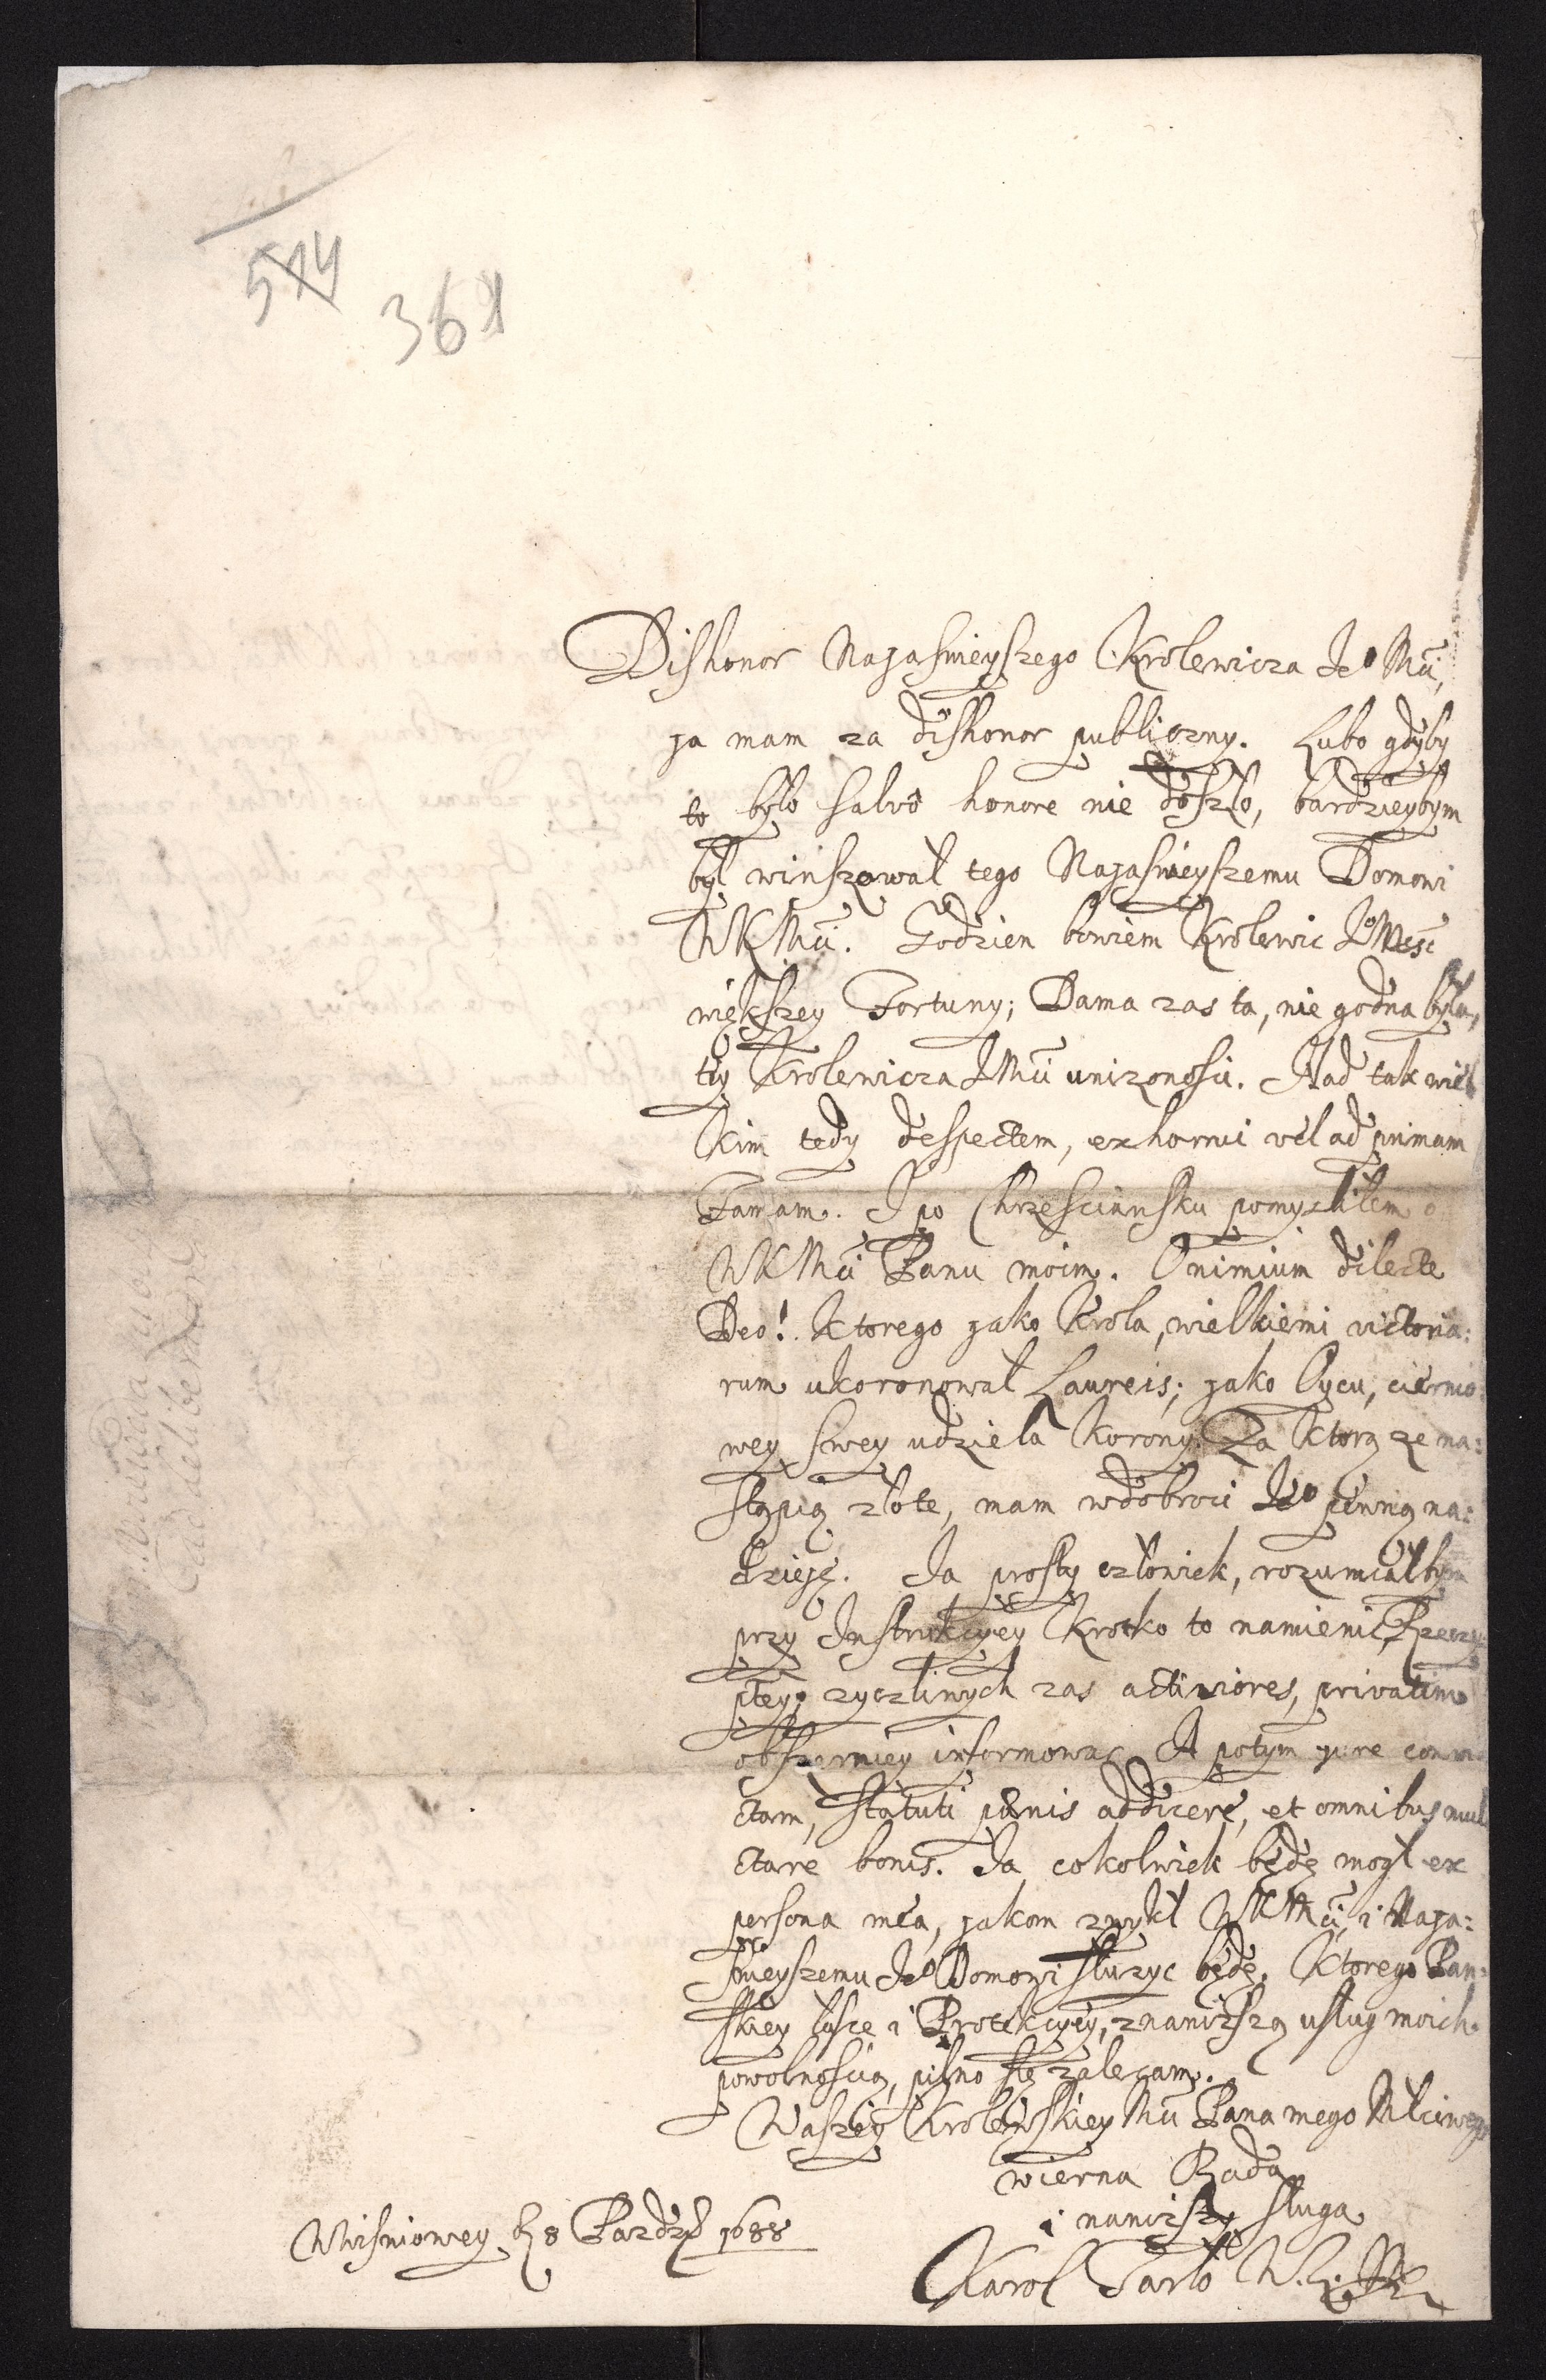 574
361
Dishonor Najasnieyszego Krolewicza Jeo Mci,
ja mam za dishonor publiczny. Lubo gdyby
to było salvo honore nie doszło, bardzieybym
był winszował tego Najasnieyszemu Domowi
WKMci. Godzien bowiem Krolewic JoMość
większey Fortuny; Dama zas ta, nie godna była,
tey Krolewicza JMci unizonosci. Nad tak wiel
kim tedy despectem, exhorrui vel ad primam
Famam. I po Chrzesciansku pomyslilem o
WKMci Panu moim. O nimium dilecte
Deo! Ktorego jako Krola, wielkiemi victoria:
rum ukoronował Laureis; jako Oycu, ciernio
wey swey udziela Korony. Za ktorą ze na:
stąpią złote, mam w dobroci Jeo pewną na:
dzieję. Ja prosty człowiek, rozumiałbym
przy Instrukcyey krotko to namienic, Rzeczy
ptey. zyczliwych zas activiores, privatim
obszerniey informowac. A potym jure convi
ctam, statuti pœnis addicere, et omnibus mul
ctare bonis. Ja cokolwiek będę mogł ex
persona mea, jakom zwykł WKMci, i Naja:
snieyszemu Jeo Domowi słuzyc będę. Ktorego Pan:
skiey łasce i Protekcyey, z naniższą usług moich
powolnoscią, pilno się zalecam.
Waszey Krolewskiey Mci Pana mego Mciwego
wierna Rada
i naniższy sługa
Karol Tarło
Wisniowey 8 Pazdz 1688